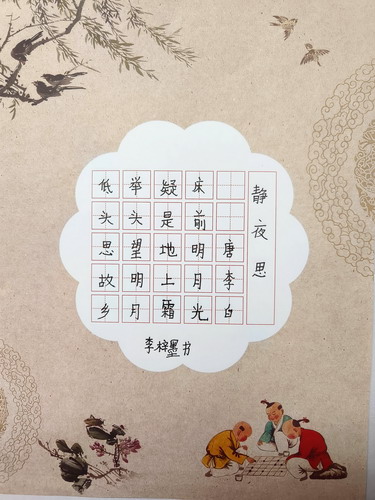 静夜思
唐李白
床前明月光
疑是地上霜
举头望明月
低头思故乡
李梓墨书